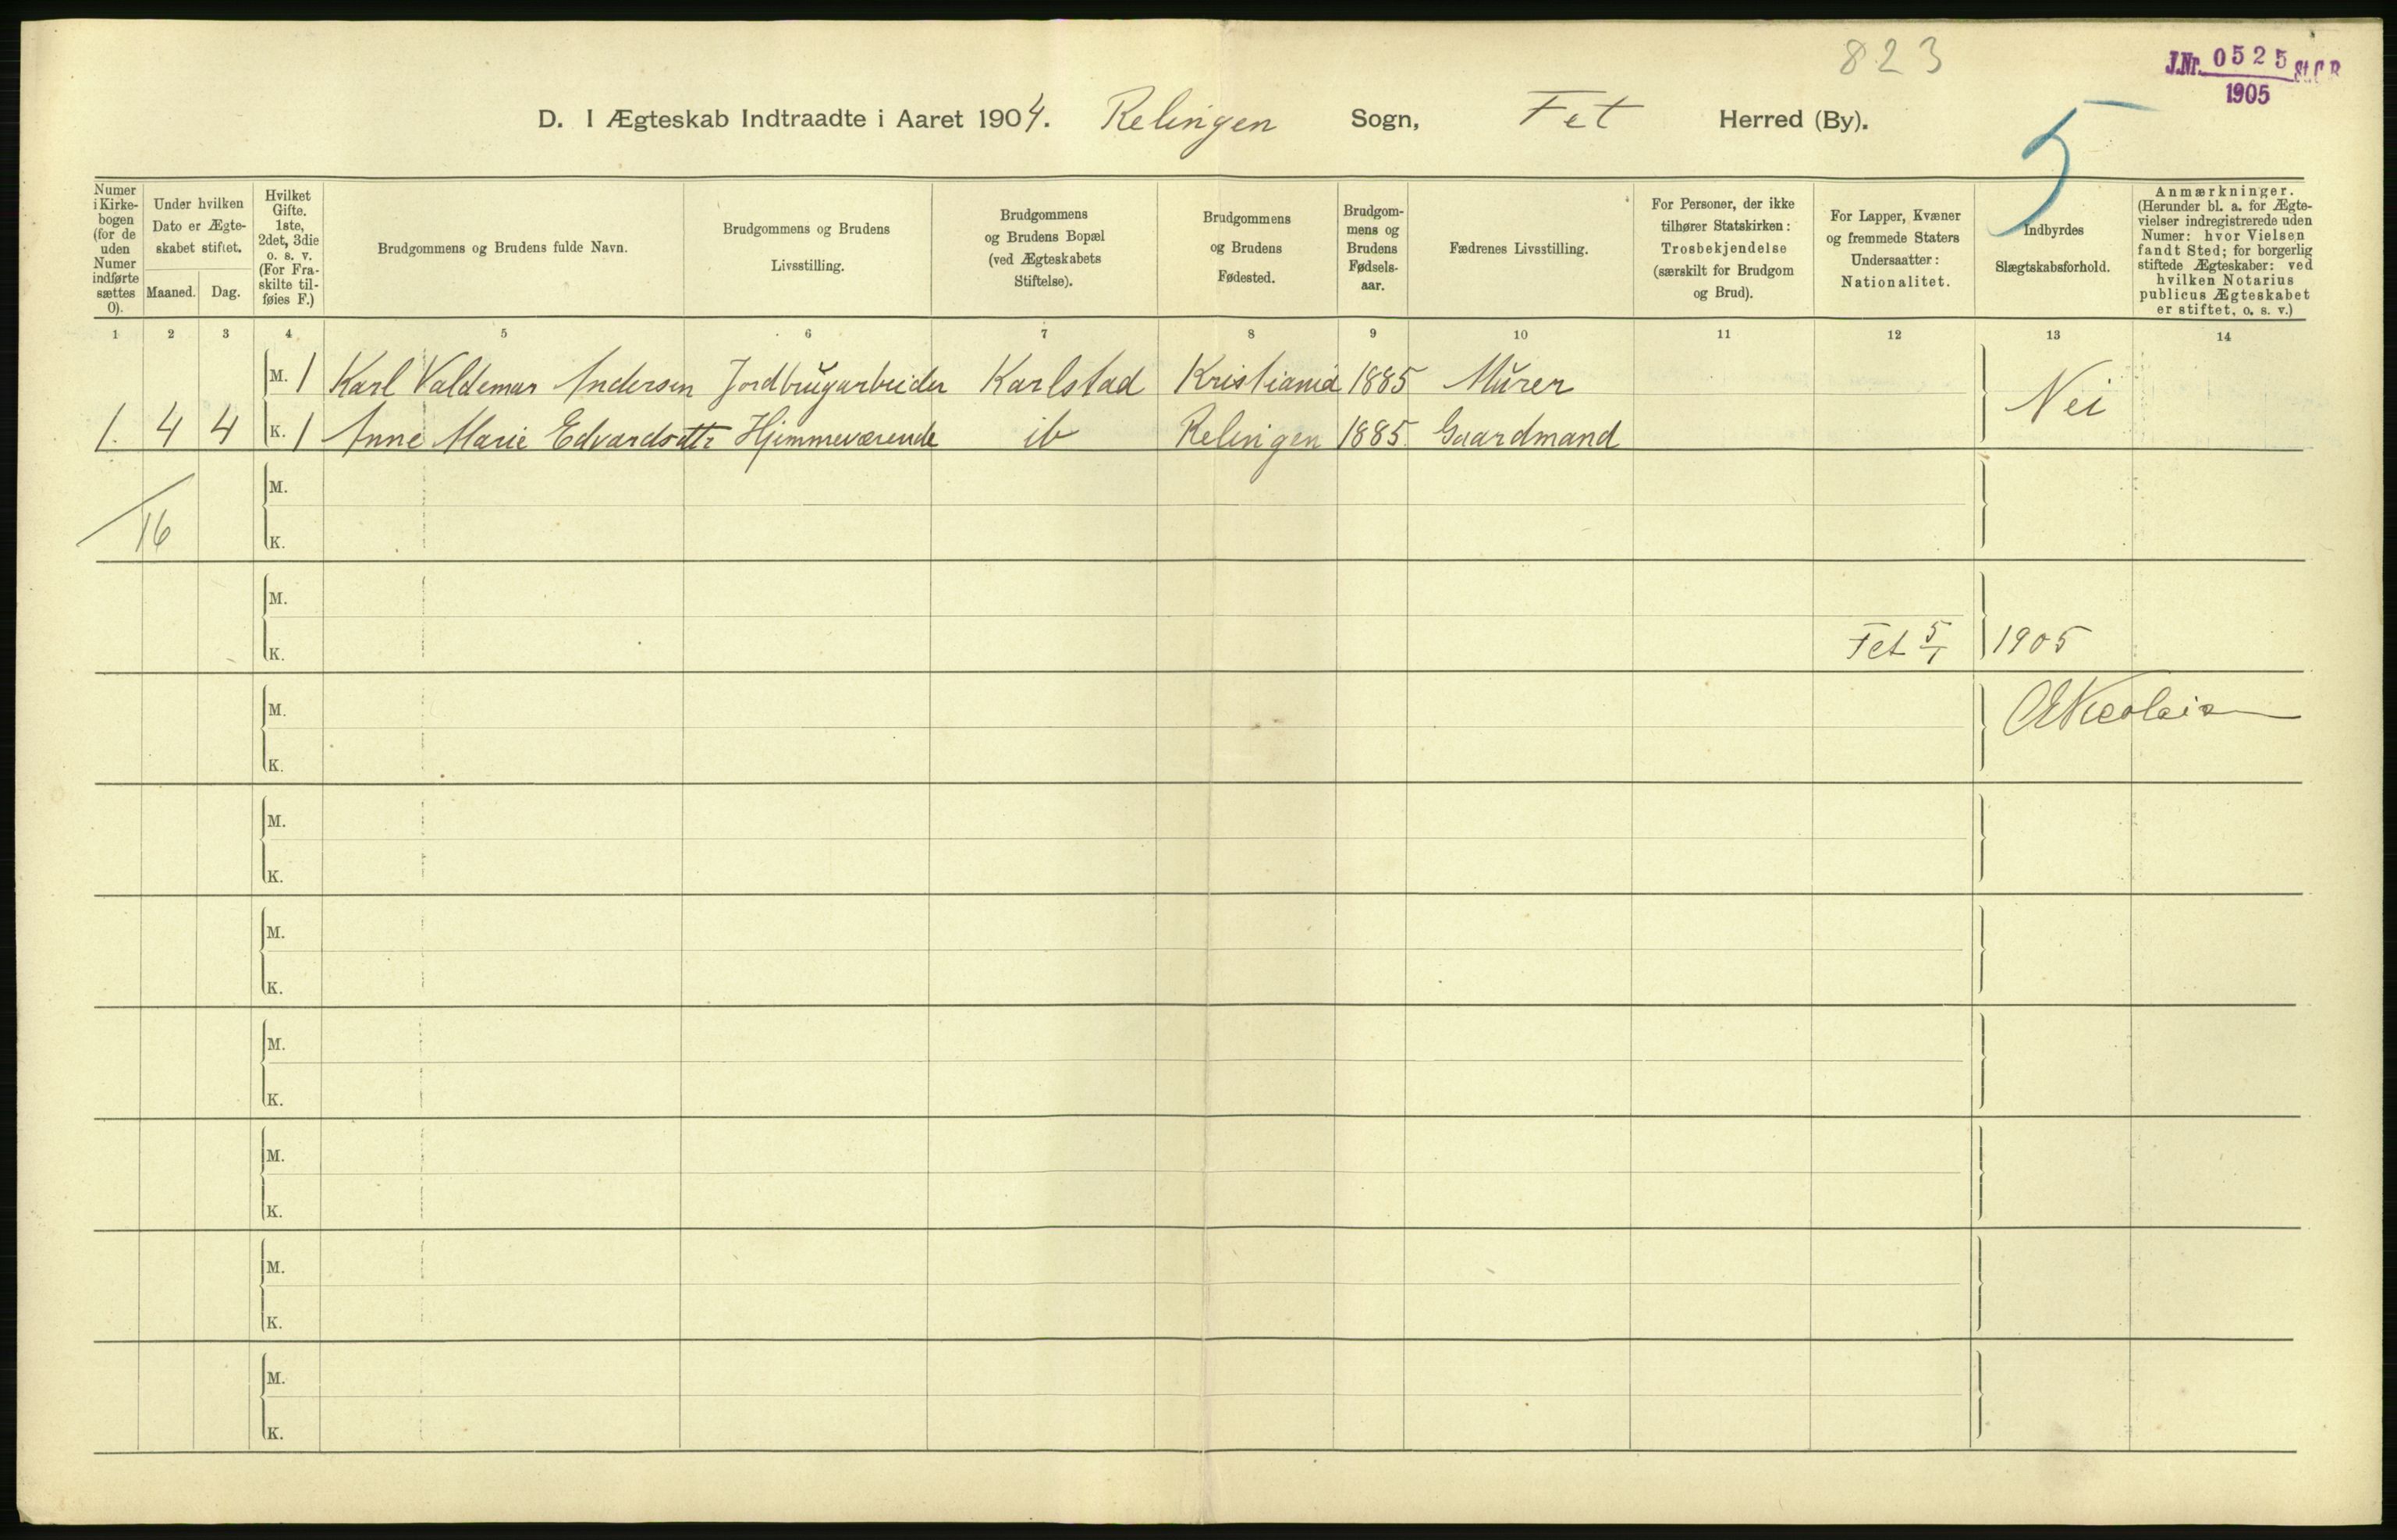 823
J.Nr. 0525 St.C.B.
1905
D. I Ægteskab Indtraadte i Aaret 1904. Relingen Sogn, Fet Herred (By).
5
Numer i Kirke-bogen (for de uden Numer indførte sættes 0).
Under hvilken Dato er Ægte-skabet stiftet.
Maaned. Dag.
Hvilket Gifte. 1ste, 2det, 3die o. s. v. (For Fra-skilte til-føies F.)
Brudgommens og Brudens fulde Navn.
Brudgommens og Brudens Livsstilling.
Brudgommens og Brudens Bopæl (ved Ægteskabets Stiftelse).
Brudgommens og Brudens Fødested.
Brudgom-mens og Brudens Fødsels-aar.
Fædrenes Livsstilling.
For Personer, der ikke tilhører Statskirken: Trosbekjendelse (særskilt for Brudgom og Brud).
For Lapper, Kvæner og fremmede Staters Undersaatter: Nationalitet.
Indbyrdes Slægtskabsforhold.
Anmærkninger. (Herunder bl. a. for Ægte-vielser indregistrerede uden Numer: hvor Vielsen fandt Sted; for borgerlig stiftede Ægteskaber: ved hvilken Notarius publicus Ægteskabet er stiftet, o. s. v.)
1 2 3 4 5 6 7 8 9 10 11 12 13 14
M. 1 Karl Valdemar Andersen Jordbrugarbeider Karlstad Kristiania 1885 Murer
Nei
1. 4 4 K. 1 Anne Marie Edvardsdtr Hjemmeværende ib Relingen 1885 Gaardmand
M.
16
K.
M.
K. Fet 5/1 1905
M.
K.
M.
K.
M.
K.
M.
K.
M.
K.
M.
K.
M.
K.